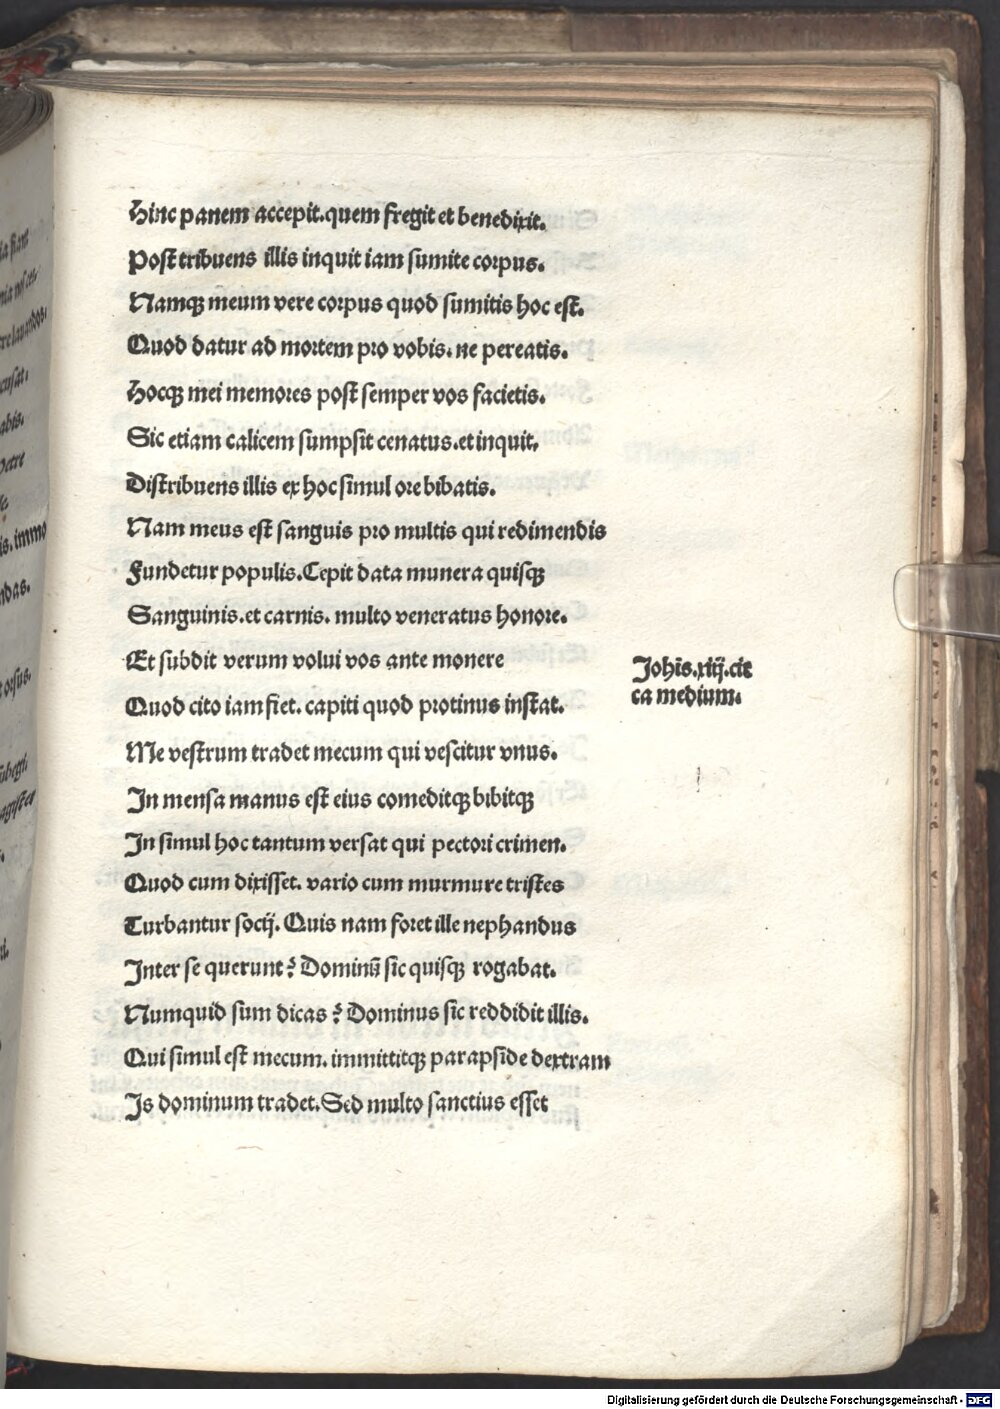 Hinc panem accepit.quem fregit et benedixit.
Post tribuens illis inquit iam sumite corpus.
Namqꝫ meum vere corpus quod sumitis hoc est.
Quod datur ad mortem pro vobis. ne pereatis.
Hocqꝫ mei memores post semper vos facietis.
Sic etiam calicem sumpsit cenatus.et inquit.
Distribuens illis ex hoc simul ore bibatis.
Nam meus est sanguis pro multis qui redimendis
Fundetur populis.Cepit data munera quisqꝫ
Sanguinis.et carnis. multo veneratus honore.
Et subdit verum volui vos ante monere
Johis.xiij.cir
ca medium.
Quod cito iam fiet. capiti quod protinus instat.
Me vestrum tradet mecum qui vescitur vnus.
In mensa manus est eius comeditqꝫ bibitqꝫ
In simul hoc tantum versat qui pectori crimen.
Quod cum dixisset. vario cum murmure tristes
Turbantur socij. Quis nam foret ille nephandus
Inter se querunt? Dominū sic quisqꝫ rogabat.
Numquid sum dicas? Dominus sic reddidit illis.
Qui simul est mecum. immittitqꝫ parapside dextram
Is dominum tradet.Sed multo sanctius esset
Digitalisierung gefördert durch die Deutsche Forschungsgemeinschaft - DFG